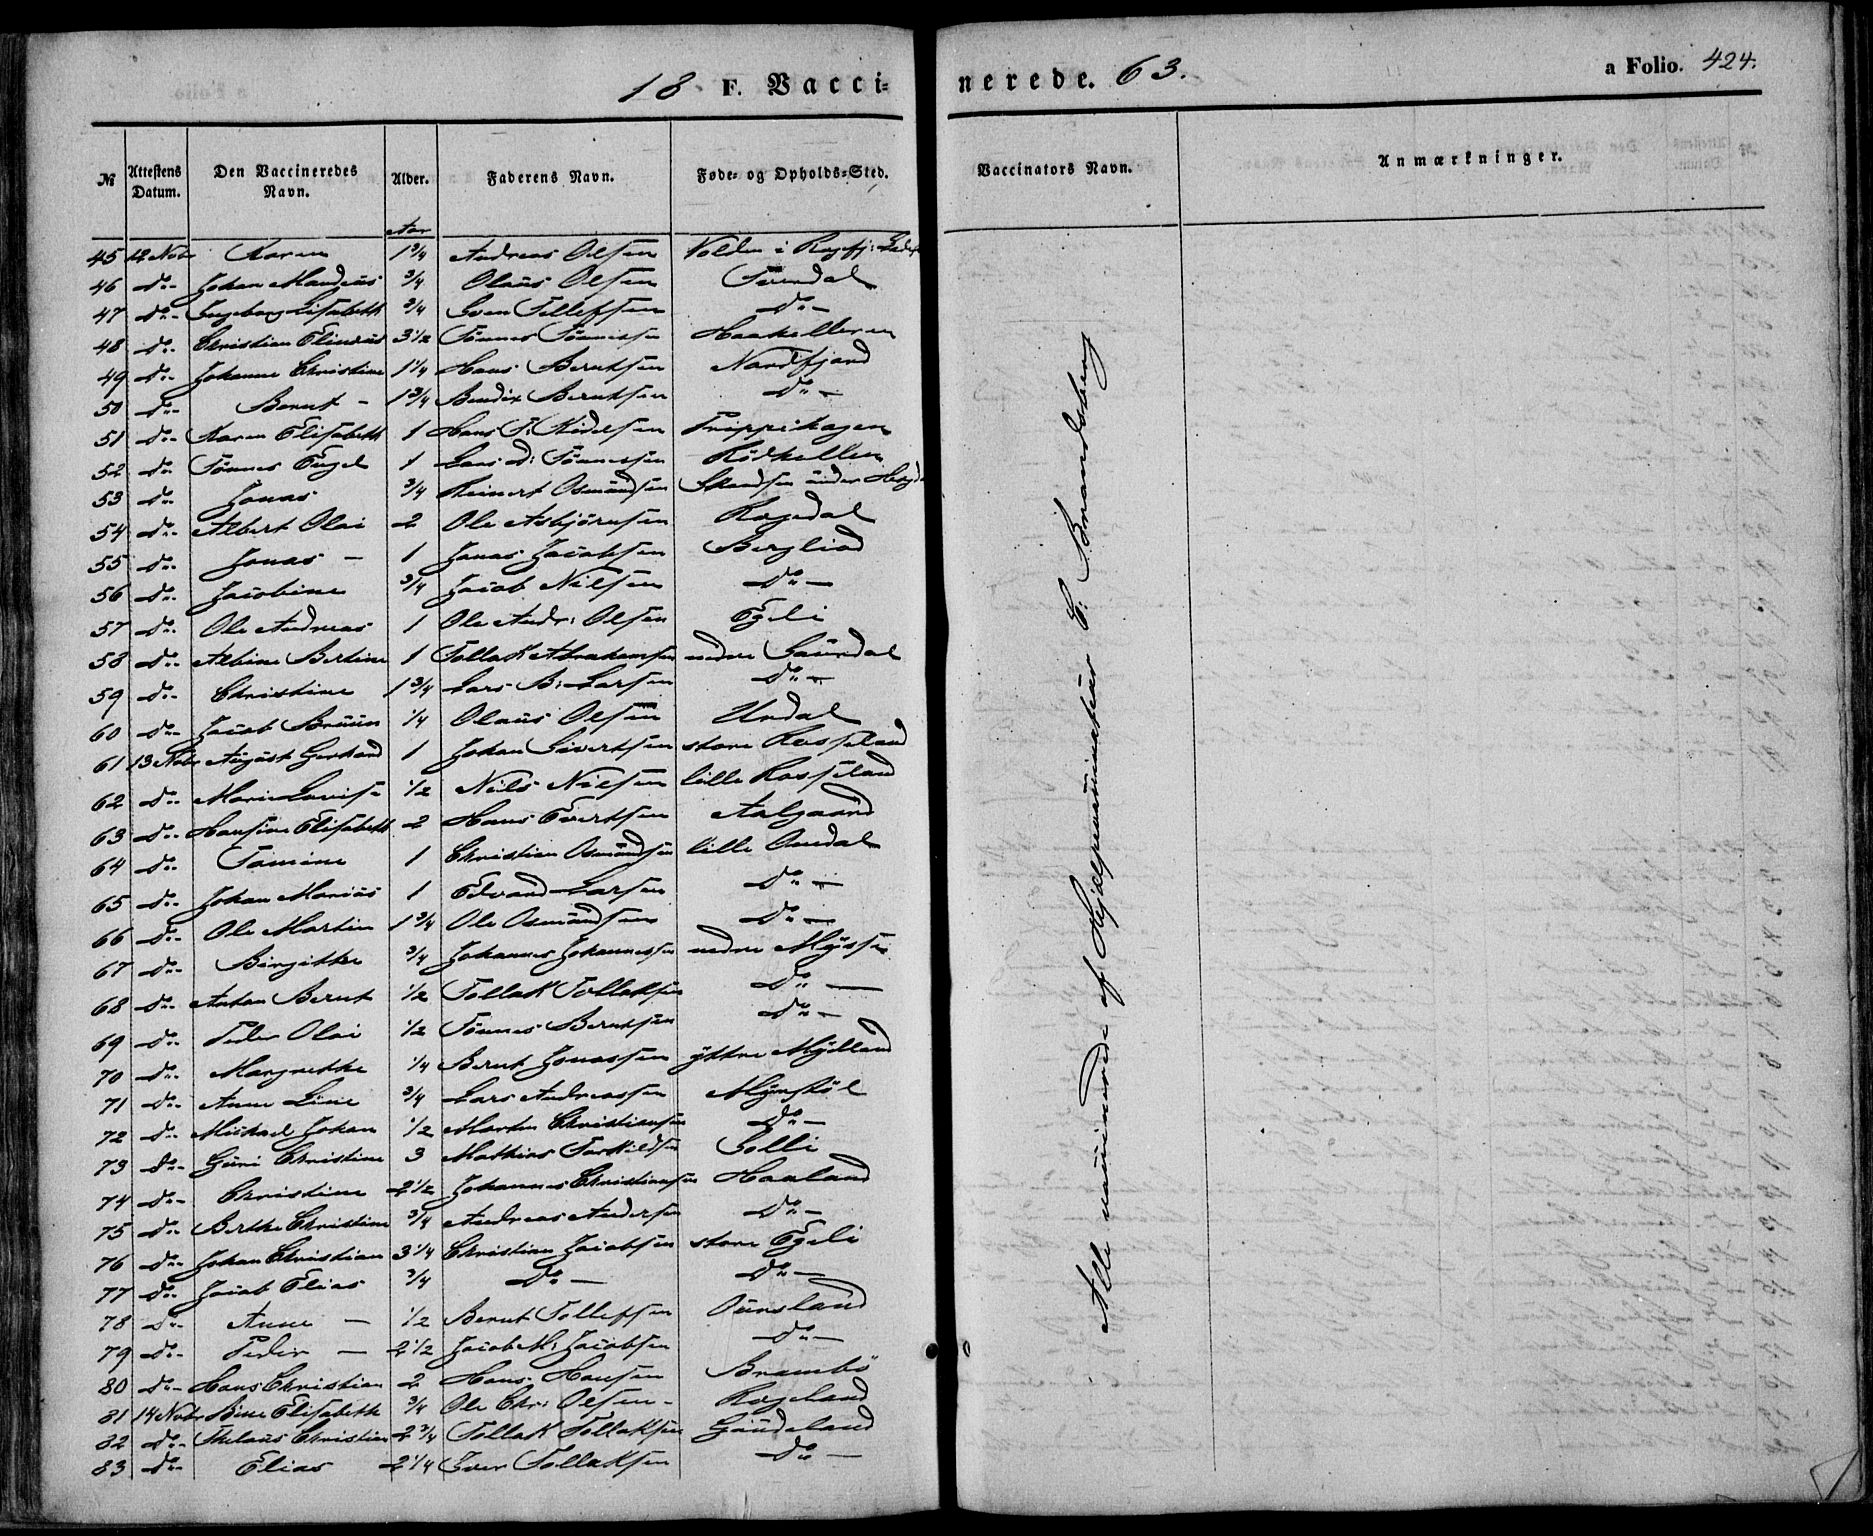 18 F. Vaccinerede. 63.
a Folio. 424.
№ | Attestens Datum. | Den Vaccineredes Navn. | Alder. | Faderens Navn. | Føde- og Opholds-Sted. | Vaccinators Navn. | Anmærkninger.
Aar
45 12 Nobr Karen 1 3/4 Andreas Olsen Volden i
46 do- Johan Mandius 3/4 Olaus Olsen
47 do- Ingeborg Lisabeth 3/4 Sven Tellefsen do-
48 do- Christian Elinius 3 1/2 Tønnes Tønnessen Haakelleren
49 do- Johanne Christine 1 1/4 Hans Berntsen Nordfjord
50 do- Bernt - 1 3/4 Bendix Berntsen do-
51 do- Karen Elisabeth 1 Hans Trippehagen
52 do- Tönnes Engel 1 Lars A: Tönnessen Rödkellen
53 do- Jonas 3/4 Reinert Osmündsen under
54 do- Albert Olai 2 Ole Asbjörnsen Rogedal
55 do- Jonas - 1 Jonas Jacobsen Bergliod
56 do- Jacobine 3/4 Jacob Nilsen do-
57 do- Ole Andreas 1 Ole Andr: Olsen Egeli
58 do- Albine Bertine 1 Tollak Abrahamsen nedre
59 do- Christine 1 3/4 Lars B: Larsen do-
60 do- Jacob Brüün 1/4 Olaüs Olsen Urdal
61 13 Nobr August Gerhard 1 Johan Sivertsen store Rosseland
62 do- Marie Lovise 1/2 Nils Nielsen lille Rosseland
63 do- Hansine Elisabeth 2 Hans Evertsen Aalgaard
64 do- Tomine 1 Christian Osmündsen lille Omdal
65 do- Johan Marius 1 Edvard Larsen do-
66 do- Ole Martin 1 3/4 Ole Osmündsen do-
67 do- Birgitte 3/4 Johannes Johannessen nedre Mÿsse
68 do- Anton Bernt 1/2 Tollak Tollaksen do-
69 do- Peder Olai 1/2 Tönnes Berntsen do-
70 do- Margrethe 1/4 Bernt Jonassen ÿttre Mÿlland
71 do- Anne Line 3/4 Lars Andreassen Mÿrstöl
72 do- Michael Johan 1/2 Martin Christiansen do-
73 do- Güri Christine 3 Mathias Torkildsen Solli
74 do- Christine 2 1/2 Johannes Christiansen Haaland
75 do- Berthe Christine 3/4 Andreas Andersen do-
76 do- Johan Christian 3 1/4 Christian Jacobsen store Egeli
77 do- Jacob Elias 3/4 do- do-
78 do- Anne - 1/2 Bernt Tollefsen Öürsland
79 do- Peder - 2 1/2 Jacob M: Jacobsen do-
80 do- Hans Christian 2 Hans Hansen Brambö
81 14 Nobr Sine Elisabeth 3/4 Ole Chr: Olsen - Rogeland
82 do- Thelaus Christian 2 3/4 Tollak Tollaksen Gaüdeland
83 do- Elias 2 1/4 Iver Tollaksen do-
Alle vaccinerede af Hjælpevaccinateur E. Strandsberg